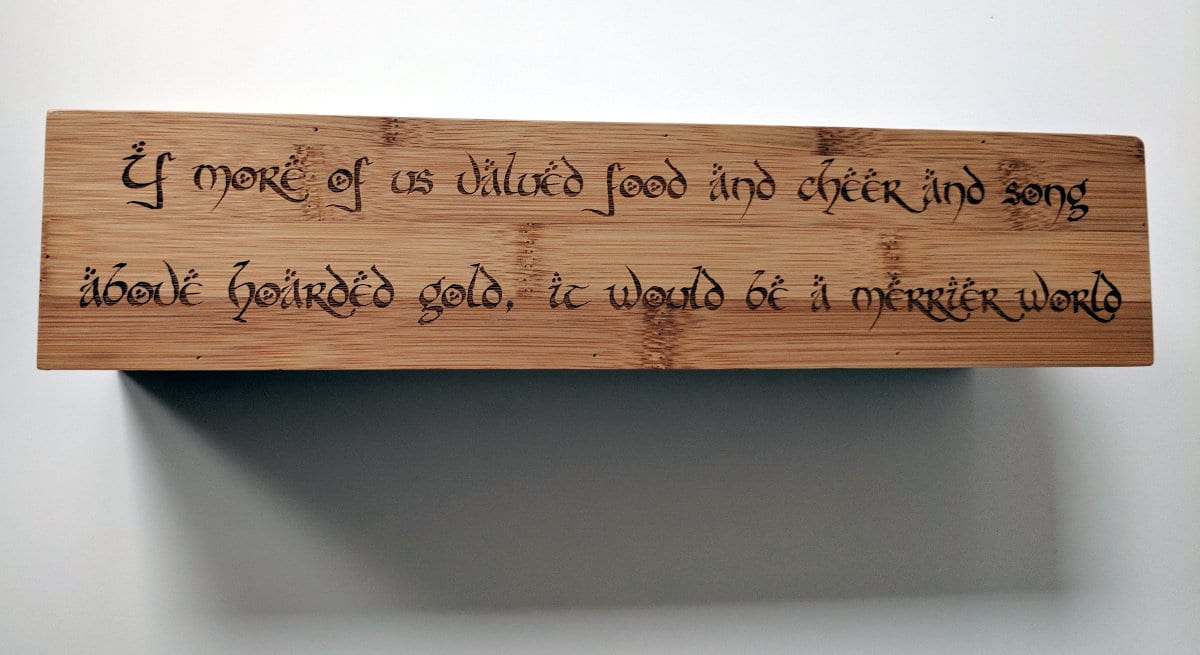 If more of us valued food and cheer and song
above hoarded gold, it would be a merrier world